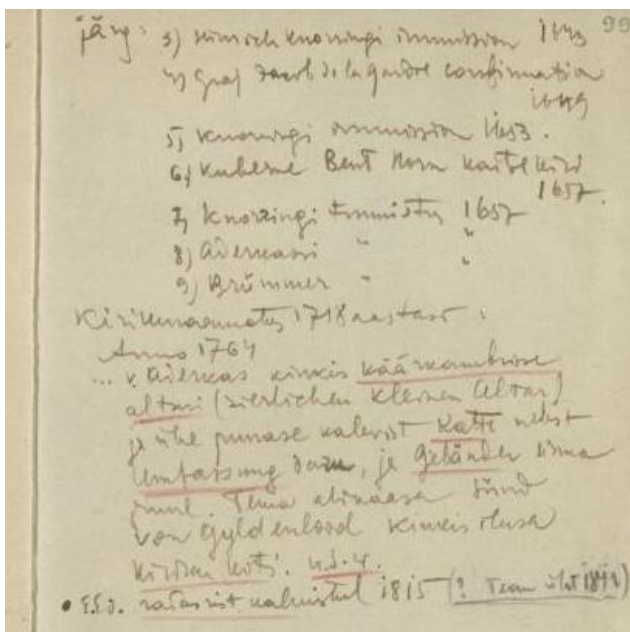 järg: 3) Heinrich Knorringi immission 1643 99
4) Graf Jacob de la Gardie confirmation
1649
5) Knorringi immission 1653.
6) Kuberner Bent Horn kaitsekiri
1657.
7) Knorringi 1657
8) Aderkassi " "
9) Brümmer "
Kirikuraamatus 1718 aastast:
Anno 1764
... v. Aderkas kinkis käärkambrisse
altari (zierlichen kleinen Altar)
ja ühe punase kalevist Katte nebst
Umfassung dazu, ja Geländer sinna
ette. Tema abikaasa sünd
von Gyldenlood kinkis ilusa
kiriku koti. u.s.w.
• E.E.J. ratasrist kalmistul 1815 (?